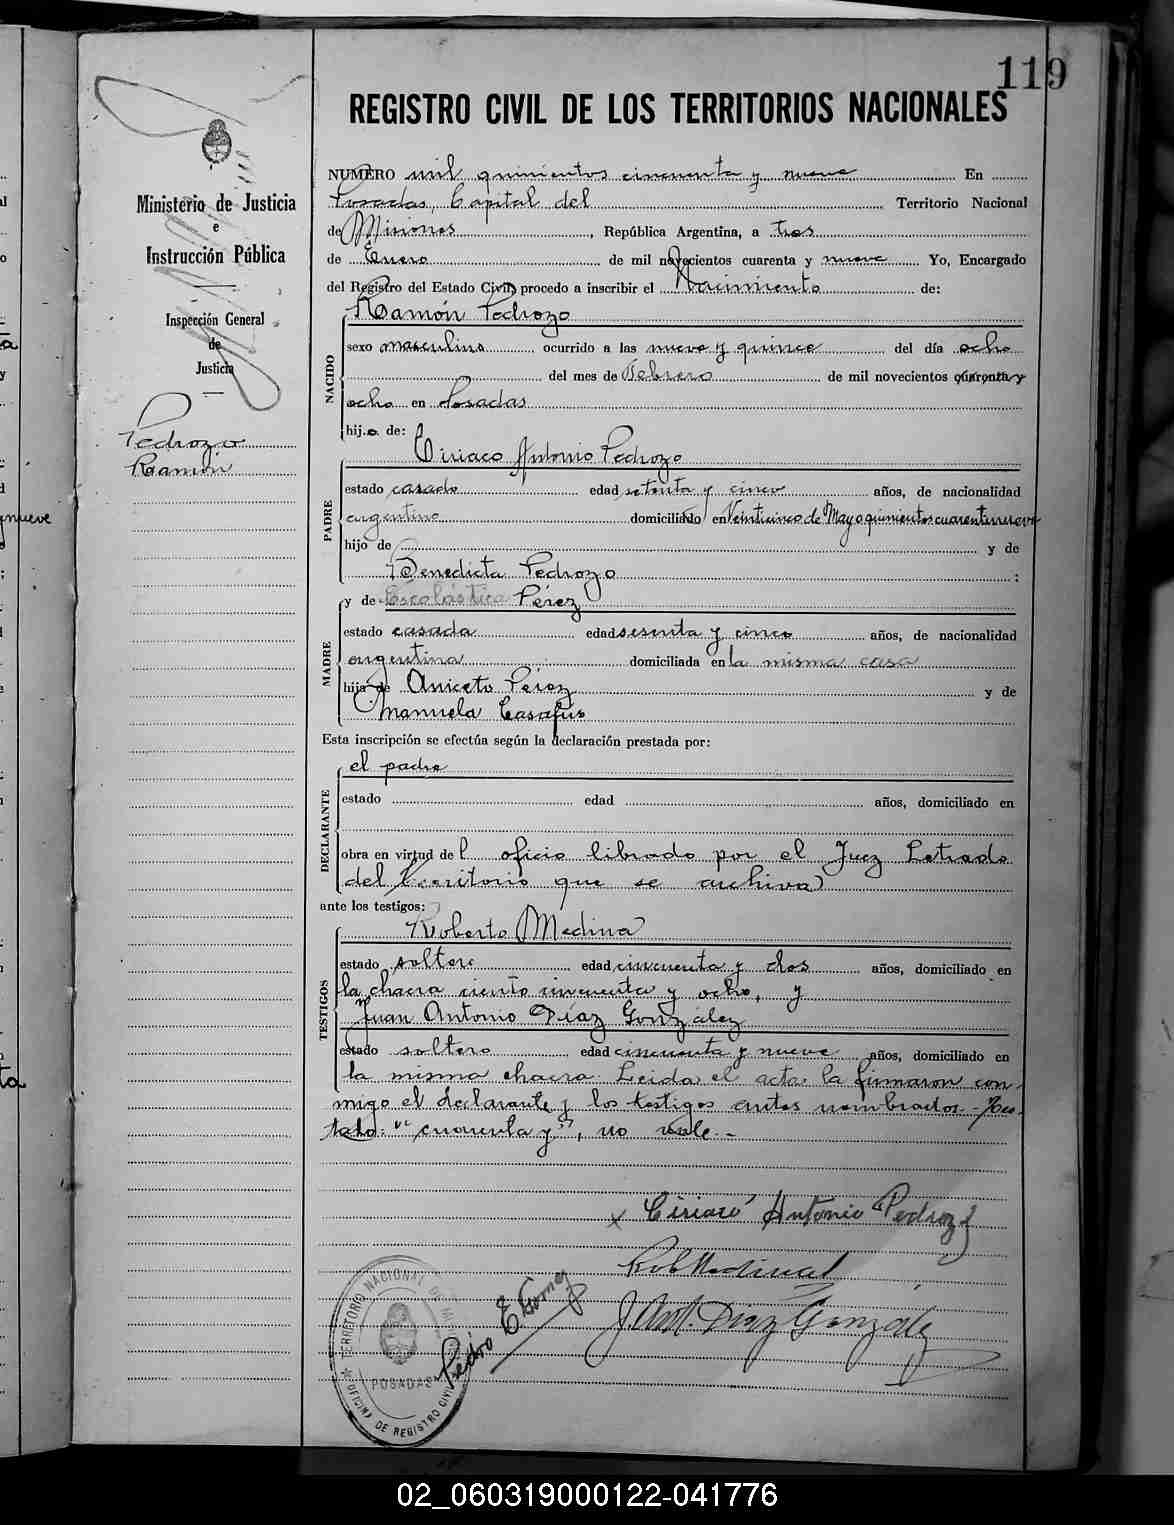 119
REGISTRO CIVIL DE LOS TERRITORIOS NACIONALES
Ministerio de Justicia
e
Instrucción Pública
Inspección General
de
Justicia
Pedrozo
Ramón
NUMERO mil quinientos cincuenta y nueve En
Posadas, Capital del Territorio Nacional
de Misiones, República Argentina, a tres
de Enero de mil novecientos cuarenta y nueve Yo, Encargado
del Registro del Estado Civil, procedo a inscribir el Nacimiento de:
Ramón Pedrozo
NACIDO
sexo masculino ocurrido a las nueve y quince del día ocho
del mes de Febrero de mil novecientos cuarenta y
ocho en Posadas
hijo de:
Ciriaco Antonio Pedrozo
PADRE
estado casado edad setenta y cinco años, de nacionalidad
argentino domiciliado en Veinticinco de Mayo quinientos cuarentinueve
hijo de y de
Benedicta Pedrozo :
y de Escolástica Pérez
MADRE
estado casada edad sesenta y cinco años, de nacionalidad
argentina domiciliada en la misma casa
hija de Aniceto Pérez y de
Manuela Casafús
Esta inscripción se efectúa según la declaración prestada por:
el padre
DECLARANTE
estado edad años, domiciliado en
obra en virtud del oficio librado por el Juez Letrado
del Territorio que se archiva)
ante los testigos:
Roberto Medina
TESTIGOS
estado soltero edad cincuenta y dos años, domiciliado en
la chacra ciento cincuenta y ocho, y
Juan Antonio Díaz González
estado soltero edad cincuenta y nueve años, domiciliado en
la misma chacra. Leida el acta la firmaron con-
migo el declarante y los testigos antes nombrados.- Tes-
tado: "cuarenta y", no vale.-
x Ciriaco Antonio Pedrozo
Rob Medina
J. Ant. Díaz González
Pedro E.
TERRITORIO NACIONAL DE MI
POSADAS
OFICINA DE REGISTRO CIVIL
02_060319000122-041776